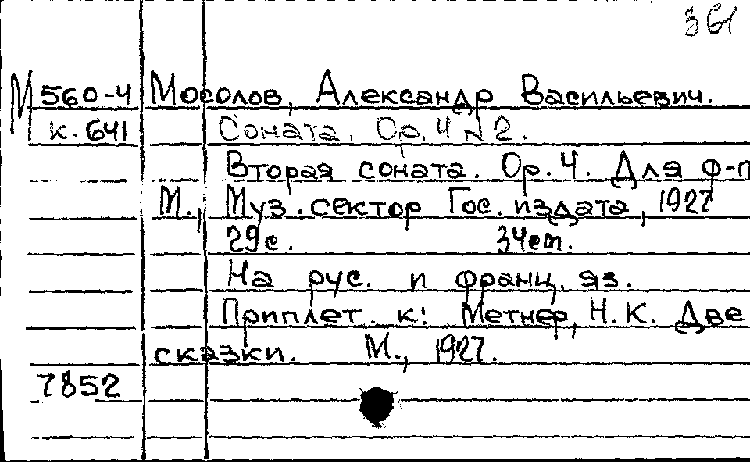 361
М 560-4 Мосолов, Александр Васильевич.
к. 641 Соната, Ор. 4 N 2.
Вторая соната. Ор. 4. Для ф-п
М., Муз. сектор Гос. издата, 1927
29 с. 34 ст.
На рус. и франц. яз.
Приплет. к: Метнер, Н.К. Две
сказки. М., 1927.
7852